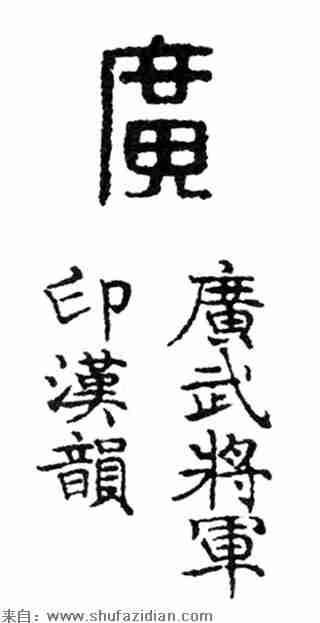 廣
廣武將軍
印漢韻
来自：www.shufazidian.com